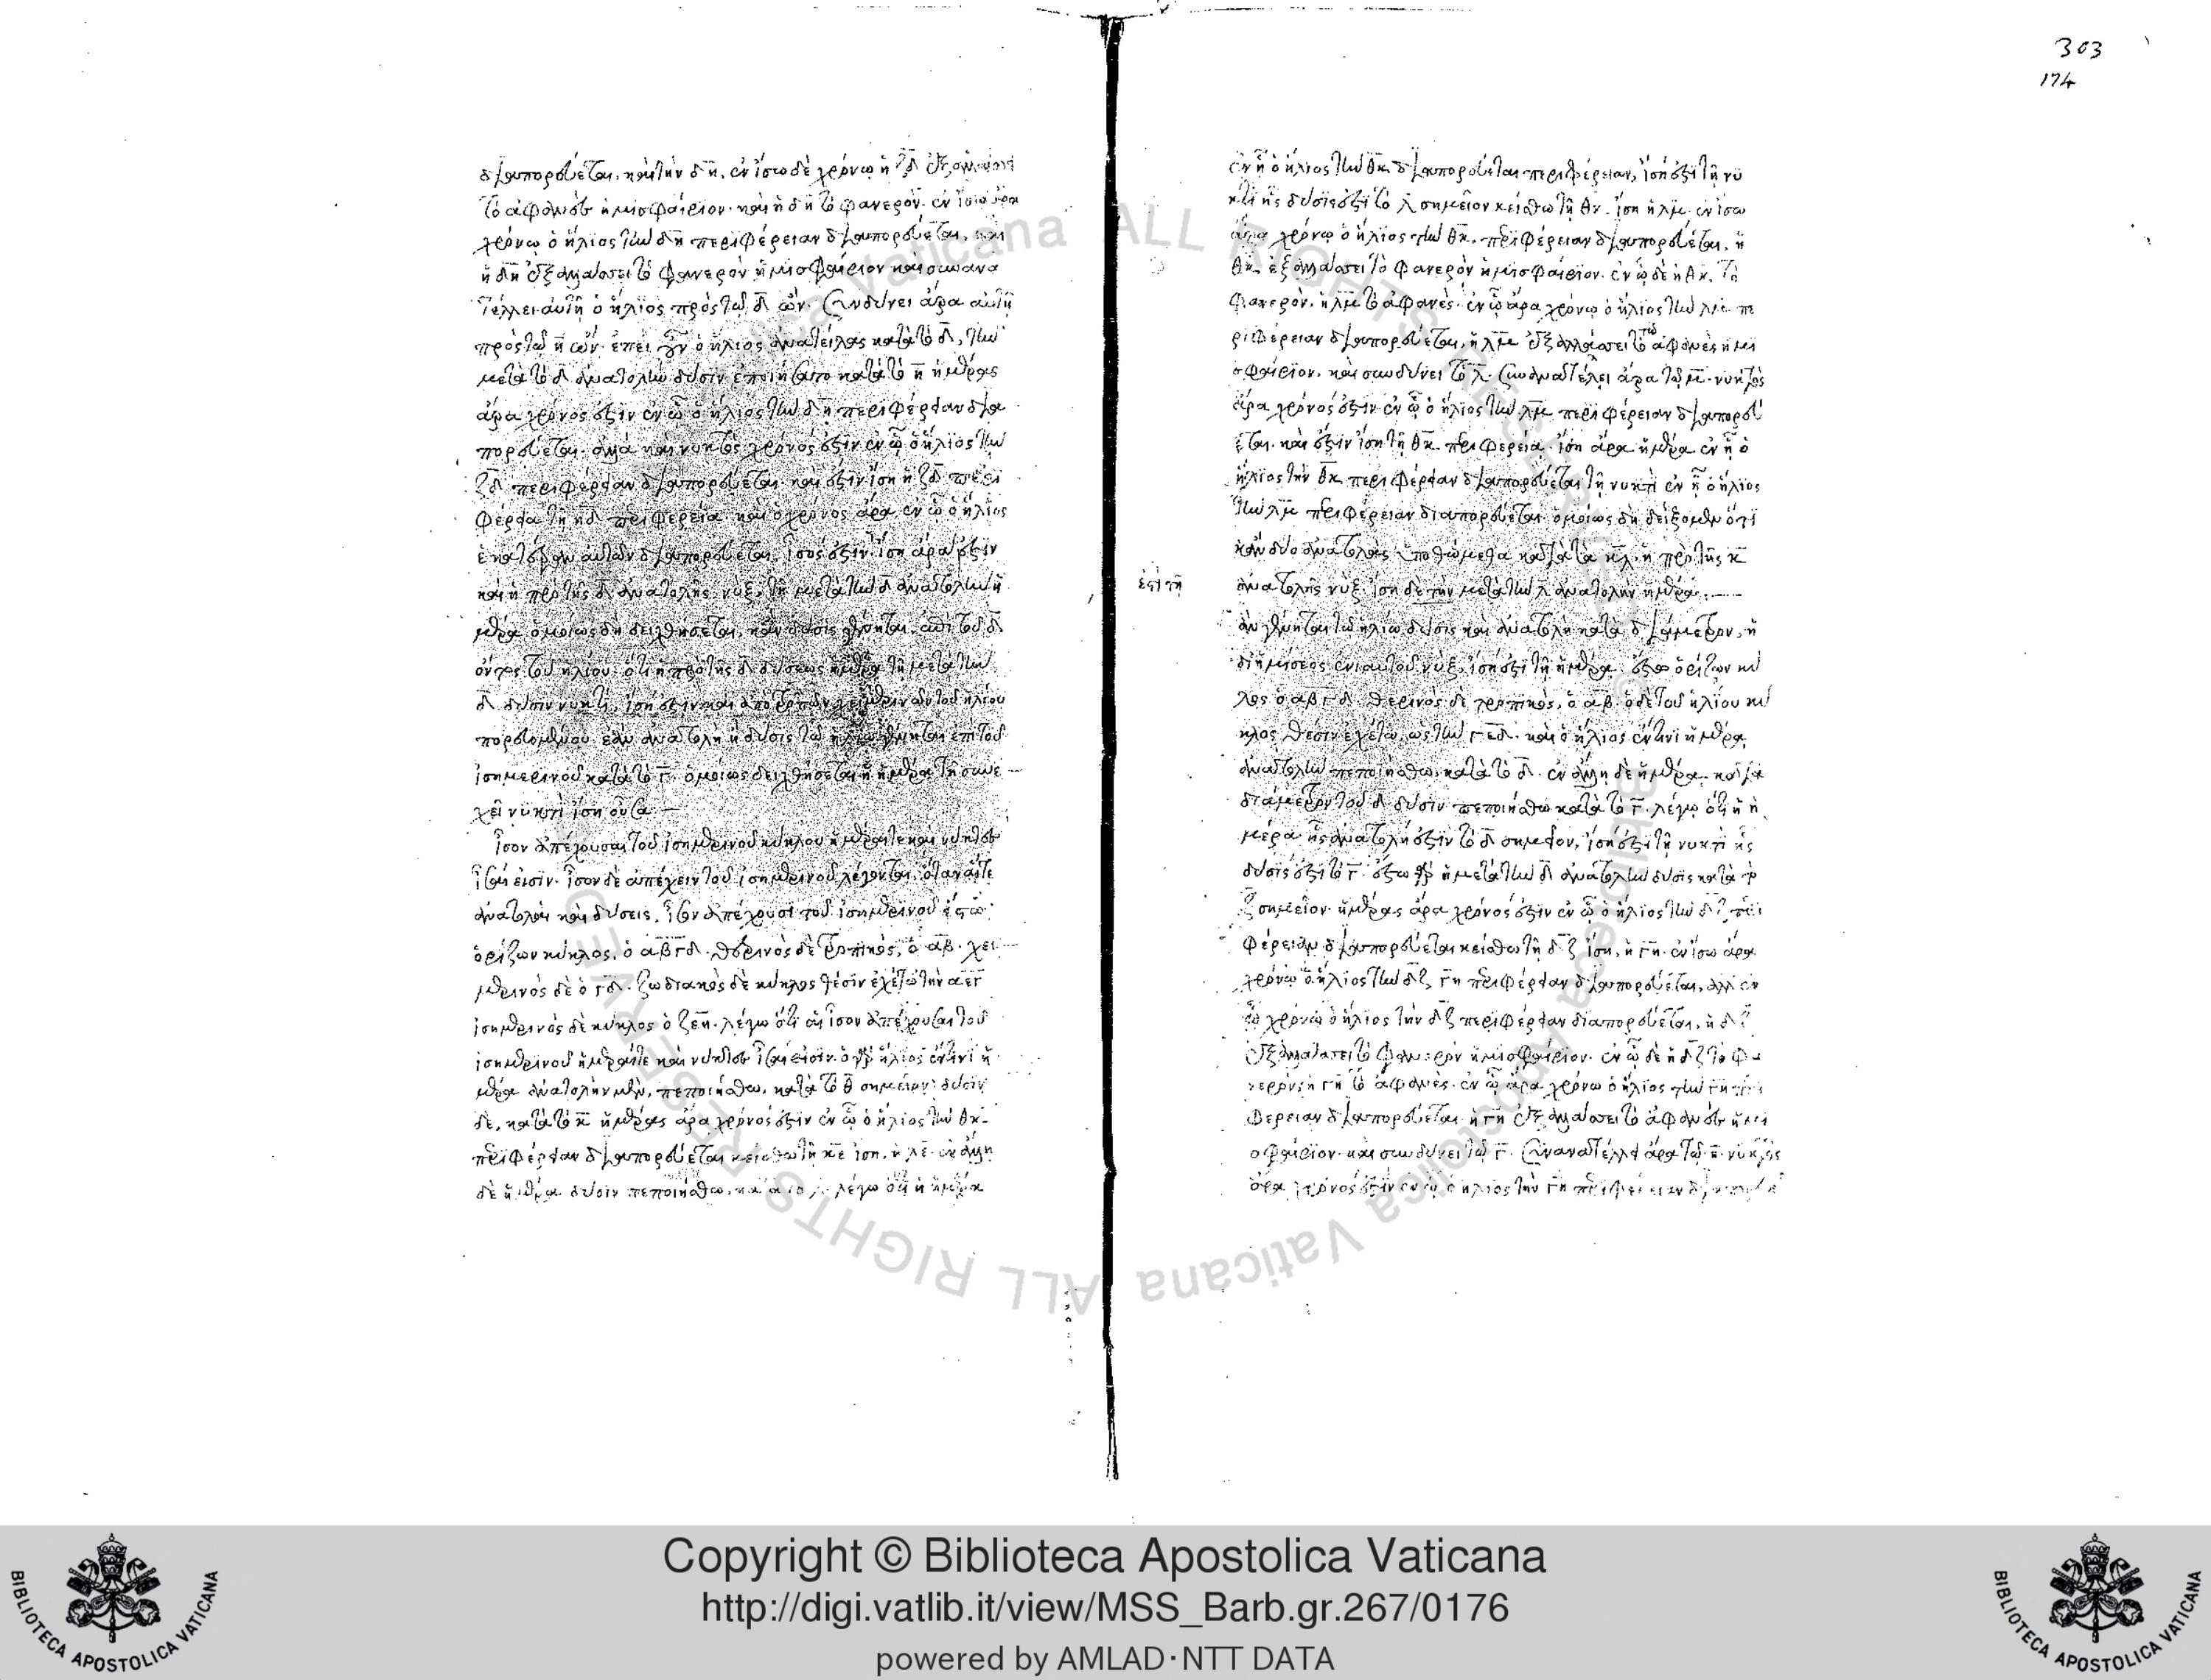 διαπορεύεται, καὶ τὴν δη. ἐν ἴσω δὲ χρόνω ἡ ζδ ἐξαλλάσσει
τὸ ἀφανὲς ἡμισφαίριον. καὶ ἡ δη τὸ φανερόν. ἐν ἴσω ἄρα
χρόνω ὁ ἥλιος τὴν δη περιφέρειαν διαπορεύεται, καὶ
ἡ δη ἐξαλλάσσει τὸ φανερὸν ἡμισφαίριον καὶ συνανα
τέλλει αὐτῆ ὁ ἥλιος πρὸς τῶ δ ὤν. συνδύνει ἄρα αὐτῆ
πρὸς τῶ η ὤν. ἐπεὶ οὖν ὁ ἥλιος ἀνατείλας κατὰ τὸ δ, τὴν
μετὰ τὸ δ ἀνατολὴν δύσιν ἐποιήσατο κατὰ τὸ η ἡμέρας
ἄρα χρόνος ἐστὶν ἐν ὧ ὁ ἥλιος τὴν δη περιφέρειαν δια
πορεύεται. ἀλλὰ καὶ νυκτὸς χρόνος ἐστὶν ἐν ὧ ὁ ἥλιος τὴν
ζδ περιφέρειαν διαπορεύεται. καὶ ἐστὶν ἴση ἡ ζδ περι
φέρεια τῆ ηδ περιφερεία. καὶ ὁ χρόνος ἄρα ἐν ὧ ὁ ἥλιος
ἑκατέραν αὐτῶν διαπορεύεται, ἴσος ἐστίν. ἴση ἄρα ἐστὶν
καὶ ἡ πρὸ τῆς δ ἀνατολῆς νὺξ, τῆ μετὰ τὴν δ ἀνατολὴν ἡ
μέρα. ὁμοίως δὴ δειχθήσεται, κἂν δύσις γένηται, ἐπὶ τοῦ δ
ὄντος τοῦ ἡλίου. ὅτι ἡ πρὸ τῆς δ δύσεως ἡμέρα τῆ μετὰ τὴν
δ δύσιν νυκτὶ, ἴση ἐστὶν καὶ ἀπὸ τροπῶν χειμερινῶν τοῦ ἡλίου
πορευομένου. ἐὰν ἀνατολὴ ἢ δύσις τῶ ἡλίω γένηται ἐπὶ τοῦ
ἰσημερινοῦ κατὰ τὸ γ. ὁμοίως δειχθήσεται ἡ ἡμέρα τῆ συνε
χεῖ νυκτὶ ἴση οὖσα
ἴσον ἀπέχουσαι τοῦ ἰσημερινοῦ κύκλου ἡμέραι τε καὶ νύκτες
ἴσαι εἰσίν. ἴσον δὲ ἀπέχειν τοῦ ἰσημερινοῦ λέγονται, ὅταν αἵ τε
ἀνατολαὶ καὶ δύσεις, ἴσον ἀπέχουσι τοῦ ἰσημερινοῦ ἔστω
ὁρίζων κύκλος, ὁ αβγδ. θερινὸς δὲ τροπικὸς, ὁ αβ. χει
μερινὸς δὲ ὁ γδ. ζωδιακὸς δὲ κύκλος θέσιν ἐχέτω τὴν αεγ
ἰσημερινὸς δὲ κύκλος ὁ ζεη. λέγω ὅτι αἱ ἴσον ἀπέχουσαι τοῦ
ἰσημερινοῦ ἡμέραι τε καὶ νύκτες ἴσαι εἰσίν. ὁ γὰρ ἥλιος ἐν τινὶ ἡ
μέρα ἀνατολὴν μὲν, πεποιήσθω, κατὰ τὸ θ σημεῖον. δύσιν
δὲ, κατὰ τὸ κ ἡμέρας ἄρα χρόνος ἐστὶν ἐν ὧ ὁ ἥλιος τὴν θκ
περιφέρειαν διαπορεύεται κείσθω τῆ κε ἴση, ἡ λε. ἐν ἄλλη
δὲ ἡμέρα δύσιν πεποιήσθω, κατὰ τὸ λ. λέγω ὅτι ἡ ἡμέρα
303
174
ἐν ἧ ὁ ἥλιος τὴν θκ διαπορεύεται περιφέρειαν, ἴση ἐστὶ τῆ νυ
κτὶ ἧς δύσις ἐστὶ τὸ λ σημεῖον κείσθω τῆ θκ. ἴση ἡ λμ. ἐν ἴσω
ἄρα χρόνω ὁ ἥλιος τὴν θκ. περιφέρειαν διαπορεύεται, ἡ
θκ. ἐξαλλάσσει τὸ φανερὸν ἡμισφαίριον. ἐν ὧ δὲ ἡ θκ. τὸ
φανερὸν, ἡ λμ τὸ ἀφανές. ἐν ὧ ἄρα χρόνω ὁ ἥλιος τὴν λμ πε
ριφέρειαν διαπορεύεται, ἡ λμ ἐξαλλάσσει τὸ ἀφανὲς ἡμι
σφαίριον. καὶ συνδύνει τὸ λ. συνανατέλλει ἄρα τῶ μ. νυκτὸς
ἄρα χρόνος ἐστὶν ἐν ὧ ὁ ἥλιος τὴν λμ περιφέρειαν διαπορεύ
εται. καὶ ἐστὶν ἴση τῆ θκ περιφερεία. ἴση ἄρα ἡμέρα ἐν ἧ ὁ
ἥλιος τὴν θκ περιφέρειαν διαπορεύεται τῆ νυκτὶ ἐν ἧ ὁ ἥλιος
τὴν λμ περιφέρειαν διαπορεύεται ὁμοίως δὴ δείξομεν ὅτι
κἂν δύο ἀνατολὰς ὑποθώμεθα καὶ τὰ κλ. ἡ πρὸ τῆς κ
ἐστὶ τῆ
ἀνατολῆς νὺξ. ἴση δὲ τὴν μετὰ τὴν λ ἀνατολὴν ἡμέρα.
ἂν γένηται τῶ ἡλίω δύσις καὶ ἀνατολὴ κατὰ διάμετρον, ἡ
δι' ἡμίσεος ἐνιαυτοῦ νὺξ, ἴση ἐστὶ τῆ ἡμέρα. ἔστω ὁρίζων κύ
κλος ὁ αβγδ. θερινὸς δὲ τροπικὸς, ὁ αβ. ὁ δὲ τοῦ ἡλίου κύ
κλος θέσιν ἐχέτω, ὡς τὴν γεδ. καὶ ὁ ἥλιος ἐν τινὶ ἡμέρα
ἀνατολὴν πεποιήσθω, κατὰ τὸ δ. ἐν ἄλλη δὲ ἡμέρα κατὰ
διάμετρον τοῦ δ δύσιν πεποιήσθω κατὰ τὸ γ. λέγω ὅτι ἡ ἡ
μέρα ἧς ἀνατολή ἐστιν τὸ δ σημεῖον, ἴση ἐστὶ τῆ νυκτὶ ἧς
δύσις ἐστὶ τὸ γ. ἔστω γὰρ ἡ μετὰ τὴν δ ἀνατολὴν δύσις κατὰ τὸ
ζ σημεῖον. ἡμέρας ἄρα χρόνος ἐστὶν ἐν ὧ ὁ ἥλιος τὴν δζ περι
φέρειαν διαπορεύεται κείσθω τῆ δζ ἴση, ἡ γη. ἐν ἴσω ἄρα
χρόνω ὁ ἥλιος τὴν δζ γη περιφέρειαν διαπορεύεται, ἀλλ' ἐν
ὧ χρόνω ὁ ἥλιος τὴν δζ περιφέρειαν διαπορεύεται, ἡ δζ
ἐξαλλάσσει τὸ φανερὸν ἡμισφαίριον. ἐν ὧ δὲ ἡ δζ τὸ φα
νερὸν, ἡ γη τὸ ἀφανές. ἐν ὧ ἄρα χρόνω ὁ ἥλιος τὴν γη περι
φέρειαν διαπορεύεται ἡ γη ἐξαλλάσσει τὸ ἀφανὲς ἡμι
σφαίριον. καὶ συνδύνει τῶ γ. συνανατέλλει ἄρα τῶ η. νυκτὸς
ἄρα χρόνος ἐστὶν ἐν ὧ ὁ ἥλιος τὴν γη περιφέρειαν
Copyright © Biblioteca Apostolica Vaticana
http://digi.vatlib.it/view/MSS_Barb.gr.267/0176
powered by AMLAD·NTT DATA
BIBLIOTECA APOSTOLICA VATICANA
BIBLIOTECA APOSTOLICA VATICANA